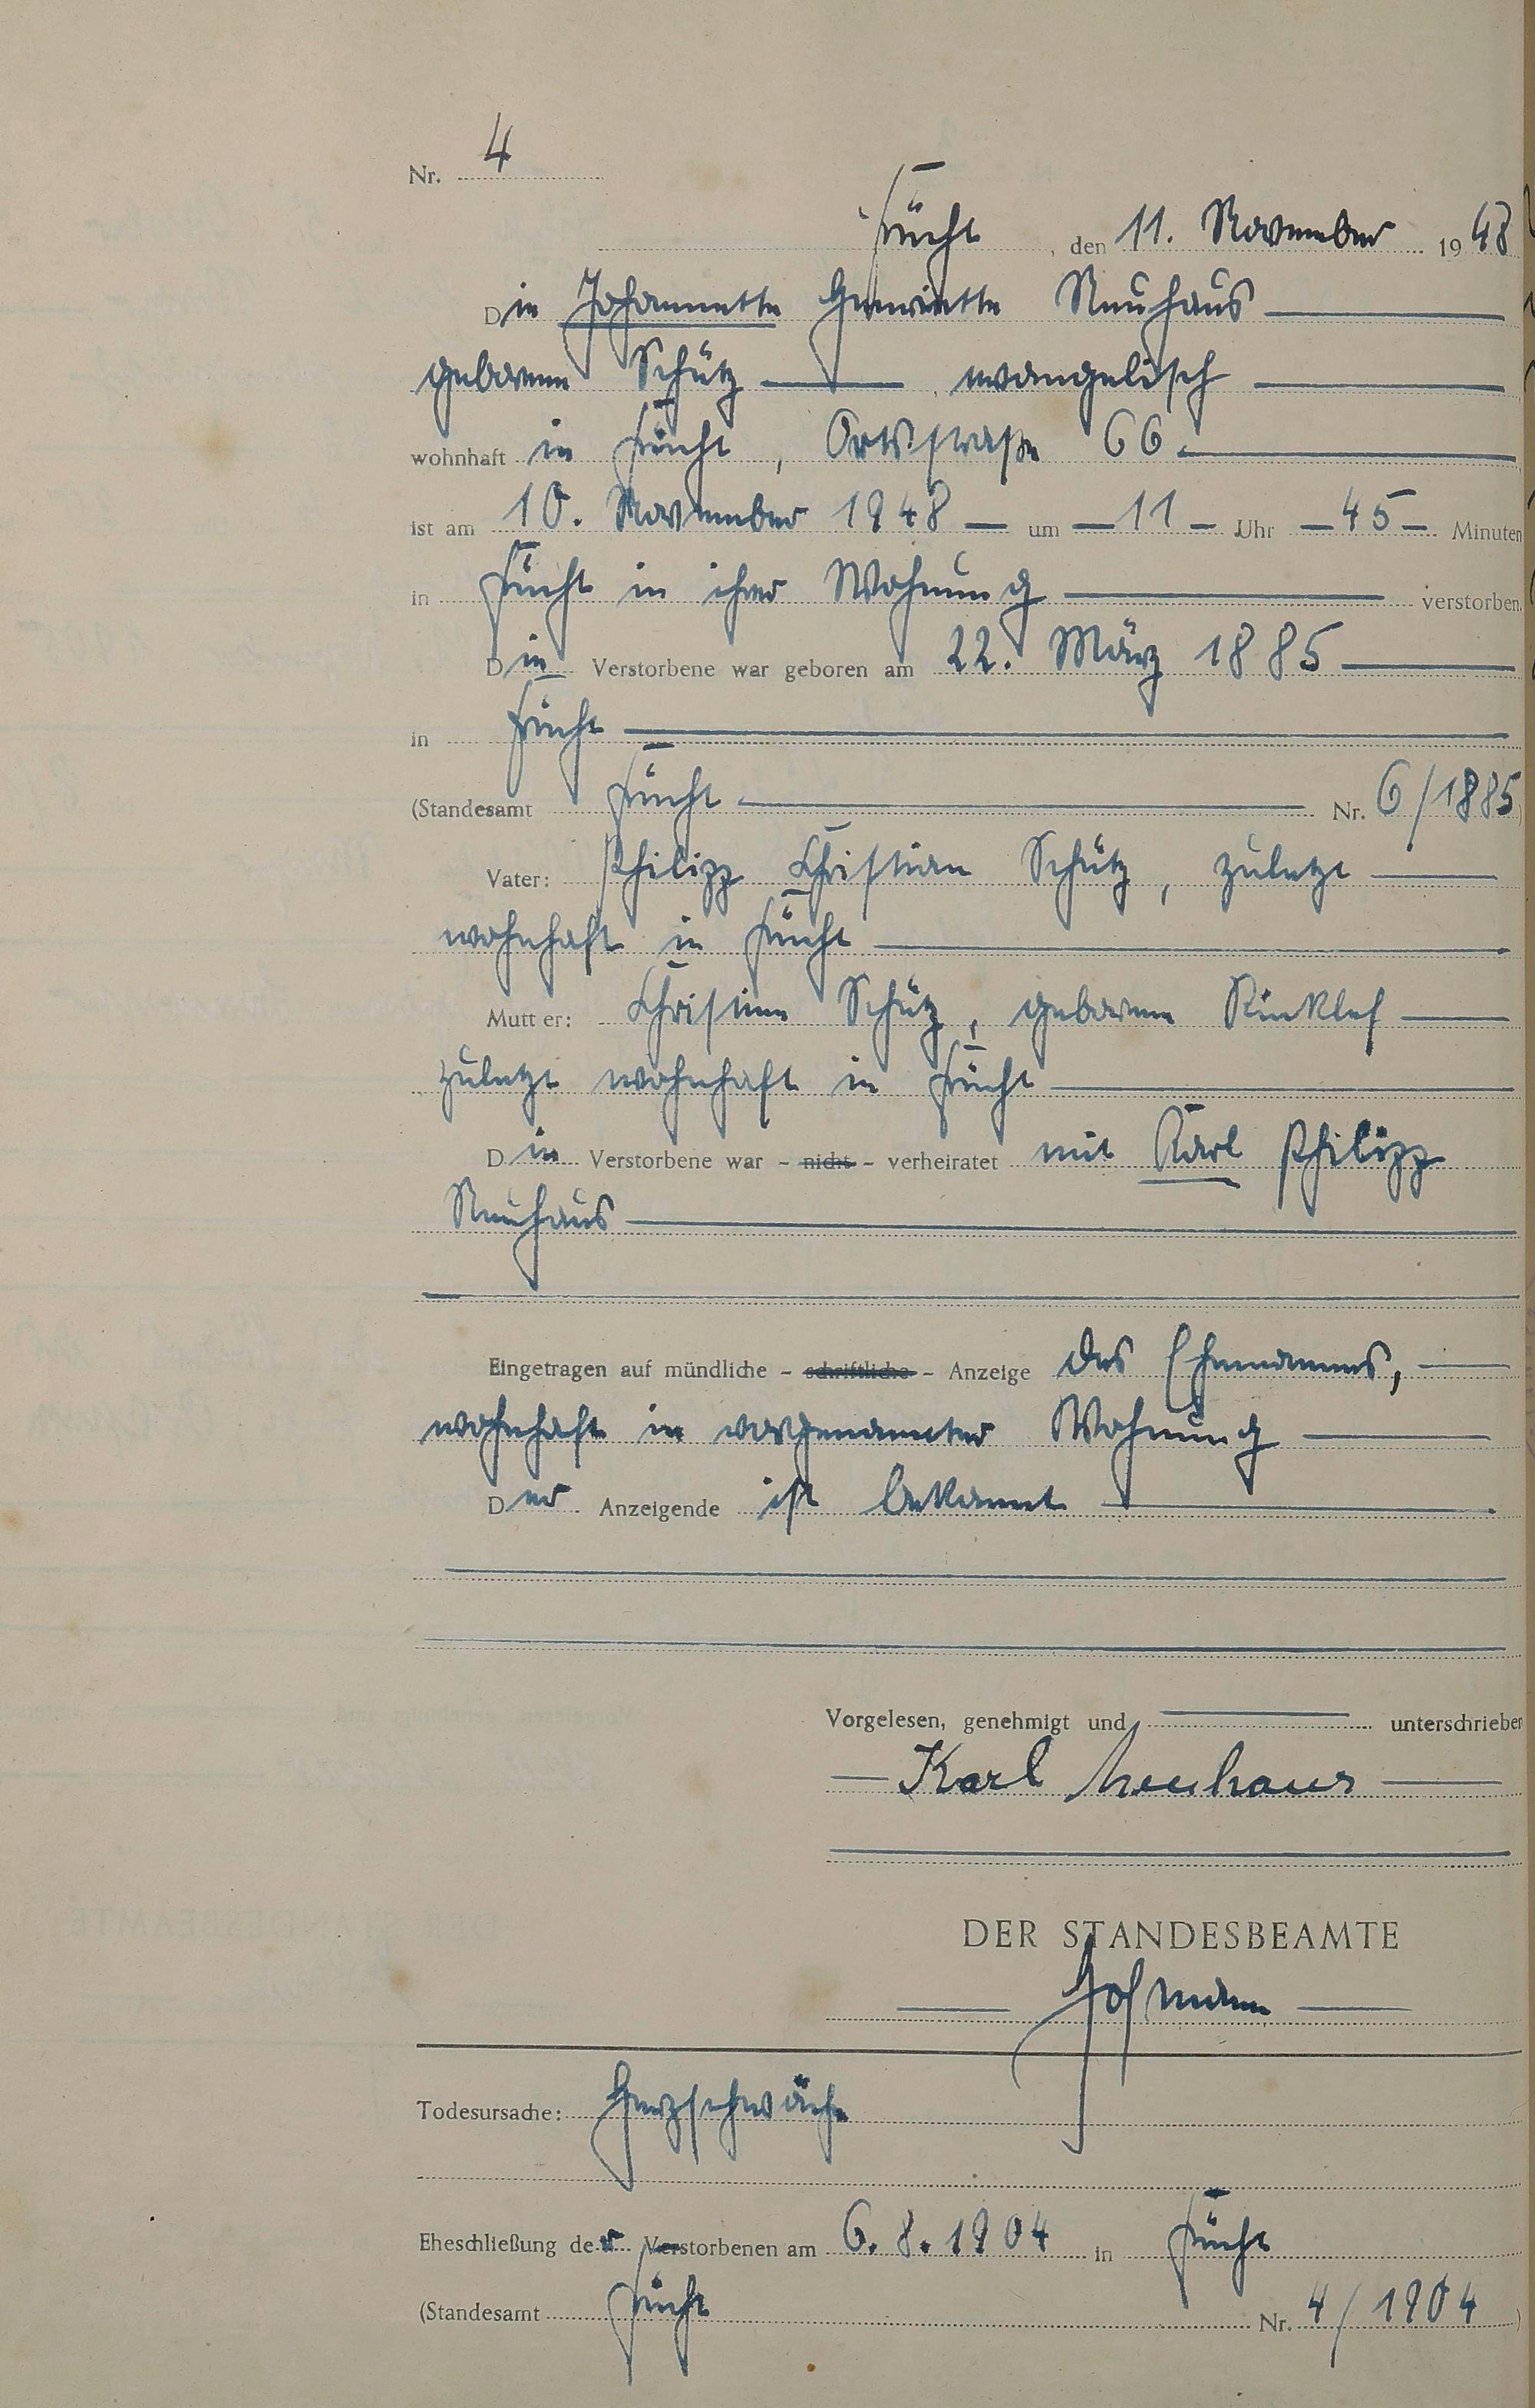 Nr. 4
Fücht, den 11. November 1948
Die Johannette Henriette Neuhaus
geborene Schütz, evangelisch
wohnhaft in Fücht, Ortsstraße 66
ist am 10. November 1948 um 11 Uhr 45 Minuten
in Fücht in ihrer Wohnung verstorben.
Die Verstorbene war geboren am 22. März 1885
in Fücht
(Standesamt Fücht Nr. 6/1885)
Vater: Philipp Christian Schütz, zuletzt
wohnhaft in Fücht
Mutter: Christine Schütz, geborene
zuletzt wohnhaft in Fücht
Die Verstorbene war - nicht - verheiratet mit Karl Philipp
Neuhaus
Eingetragen auf mündliche - schriftliche - Anzeige des Ehemannes,
wohnhaft in vorgenannter Wohnung
Der Anzeigende ist bekannt
Vorgelesen, genehmigt und unterschrieben
Karl Neuhaus
DER STANDESBEAMTE
Hofmann
Todesursache: Herzschwäche
Eheschließung der Verstorbenen am 6.8.1904 in Fücht
(Standesamt Fücht Nr. 4/1904)